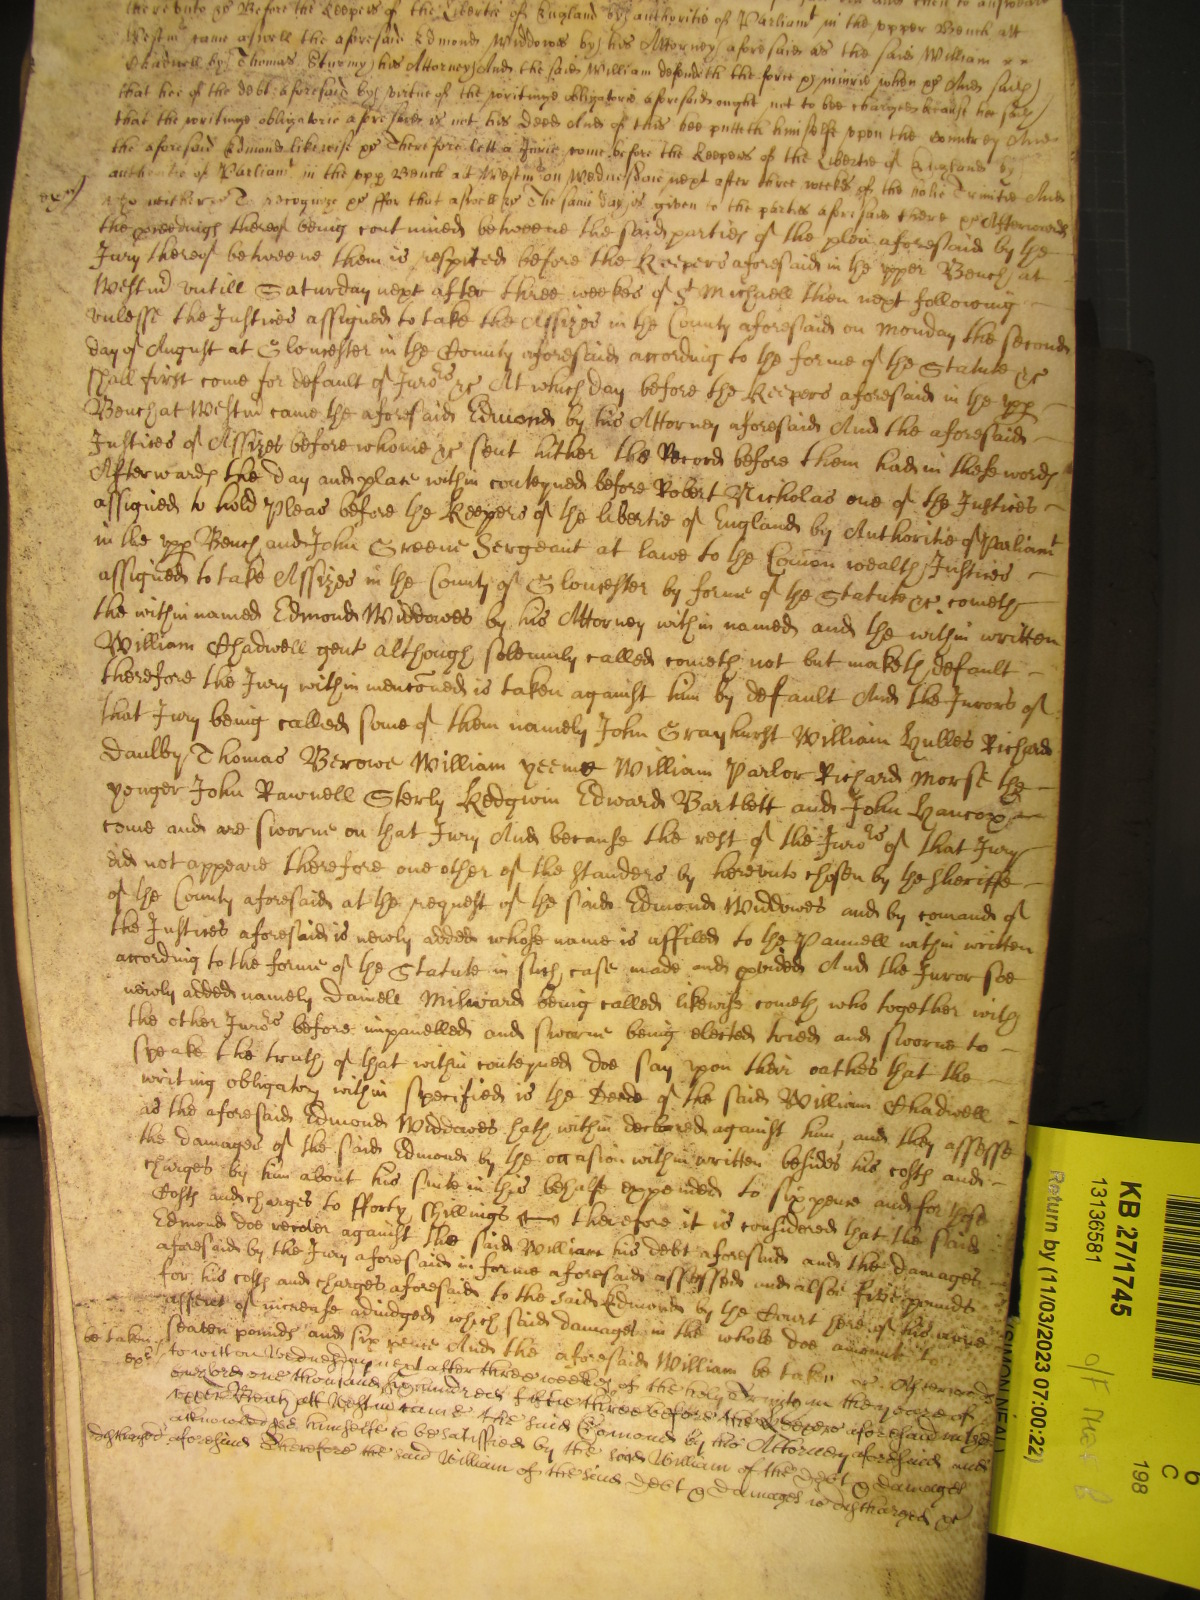 thereunto &c Before the Keepers of the Libertie of England by authoritie of Parliamt in the upper Bench att
Westmr came aswell the aforesaid Edmond Widdowes by his Attorney aforesaid as the said William
Chadwell by Thomas Sturmy his Attorney And the said William defendeth the force & iniurie when &c And saith
that hee of the debt aforesaid by virtue of the writinge obligatorie aforesaid ought not to bee charged because hee saith
that the writinge obligatorie aforesaid is not his deed And of this hee putteth himselfe upon the Countrey And
the aforesaid Edmond likewise &c Therefore lett a Jurie come before the Keepers of the Libertie of England by
authoritie of Parliamt in the upp Bench at Westmr on Wednesdaie next after three weekes of the holie Trinitie And
who neither &c To recognize &c ffor that aswell &c The same day is given to the parties aforesaid there &c Afterwards
the proceedings thereof being continued betweene the said parties of the plea aforesaid by the
Jury thereof betweene them is respited before the Keepers aforesaid in the upper Bench at
Westmr untill Saturday next after three weekes of St Michaell then next following
unlesse the Justices assigned to take the Assizes in the County aforesaid on Monday the second
day of August at Gloucester in the County aforesaid according to the forme of the Statute &c
shall first come for default of Jurors &c At which day before the Keepers aforesaid in the upp
Bench at Westmr came the aforesaid Edmond by his Attorney aforesaid And the aforesaid
Justices of Assizes before whome &c sent hither the Record before them had in these words
Afterwards the day and place within conteyned before Robert Nicholas one of the Justices
assigned to hold Pleas before the Keepers of the libertie of England by Authoritie of Parliamt
in the upp Bench and John Greene Sergeant at lawe to the Comon wealth Justices
assigned to take Assizes in the County of Gloucester by forme of the Statute &c cometh
the within named Edmond Widdowes by his Attorney within named and the within written
William Chadwell gent although solemnly called cometh not but maketh default
therefore the Jury within menconed is taken against him by default And the Jurors of
that Jury being called some of them namely John Grayhurst William Hulles Richard
Daulby Thomas Berowe William yeeme William Parlor Richard Morse the
yonger John Rawnell Sterly Kedgwin Edward Bartlett and John Hancox
come and are sworne on that Jury And because the rest of the Jurors of that Jury
did not appeare therefore one other of the standers by hereunto chosen by the sheriffe
of the County aforesaid at the request of the said Edmond Widdowes and by comand of
the Justices aforesaid is newly added whose name is affiled to the Pannell within written
according to the forme of the Statute in such case made and provided And the Juror soe
newly added namely Daniell Milward being called likewise cometh who together with
the other Jurors before impanelled and sworne being elected tried and sworne to
speake the truth of that within conteyned doe say upon their oathes that the
writing obligatory within specified is the Deede of the said William Chadwell
as the aforesaid Edmond Widdowes hath within declared against him, and they assesse
the damages of the said Edmond by the occasion within written besides his costs and
charges by him about his suite in this behalfe expended to six pence and for those
Costs and charges to fforty shillings therefore it is considered that the said
Edmond doe recover against the said William his debt aforesaid and the damages
aforesaid by the Jury aforesaid in forme aforesaid assessed and alsoe five pounds
for his costs and charges aforesaid to the said Edmond by the Court here of his owne
assent of increase adiudged which said damages in the whole doe amount to
seaven pounds and six pence And the aforesaid William be taken &c Afterwards
be taken
to witt on Wednesday next after three weekes of the holy Trinity in the yeare of
our lord one thousand six hundred fiftie three before the Keepers aforesaid in the
upper Bench att Westmr came the said Edmond by his Attorney aforesaid and
acknowledge himselfe to be satisfied by the said William of the Debt & damages
discharged
aforesaid Therefore the said William of the said Debt & damages is discharged &c
KB 27/1745
13136581
Return by (11/03/2023 07:00:22)
(SIMON NEAL)
6
C
198